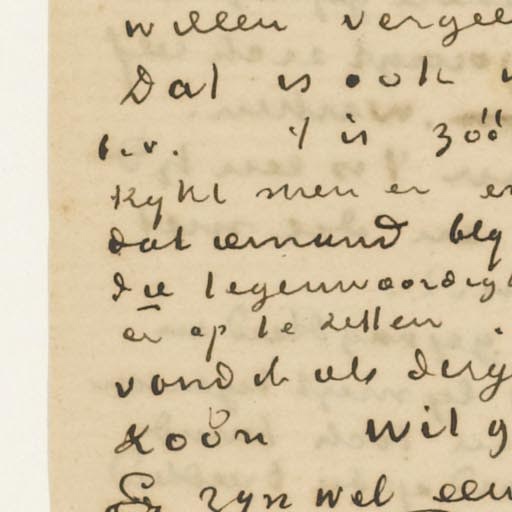 willen verge
Dat is ook
b.v. 't is zóó
Kykt men er en
dat iemand bly
die tegenwoordig
er op te zetten.
vond ik als derg
Koon wil g
Er zyn wel een